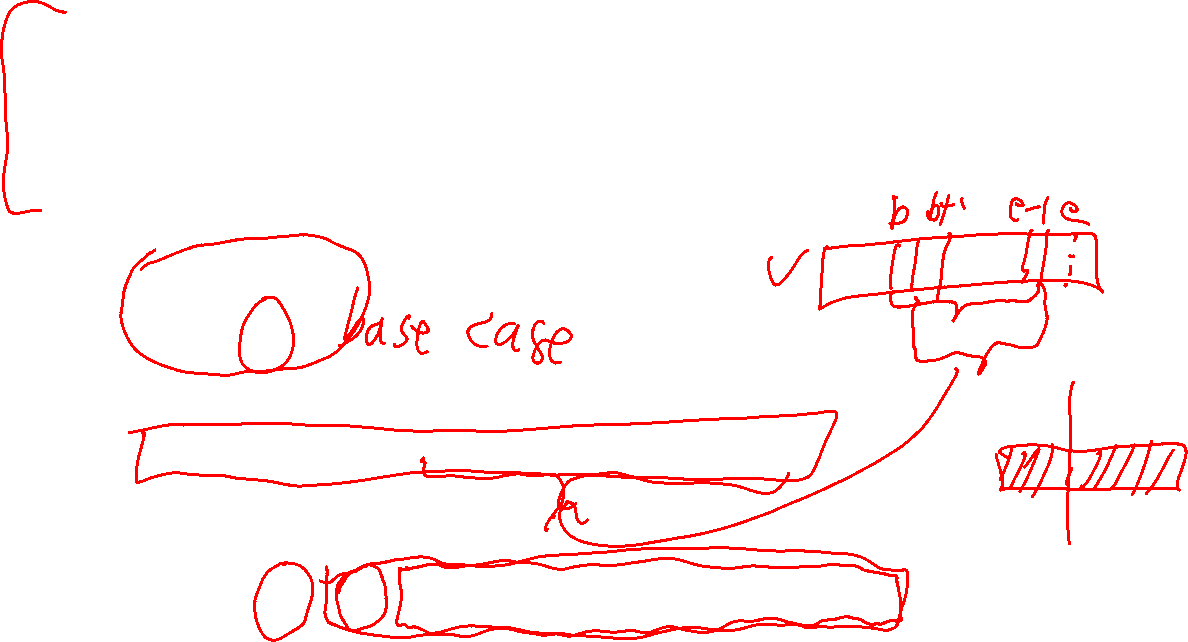 b b+1 e-1 e
i
base case